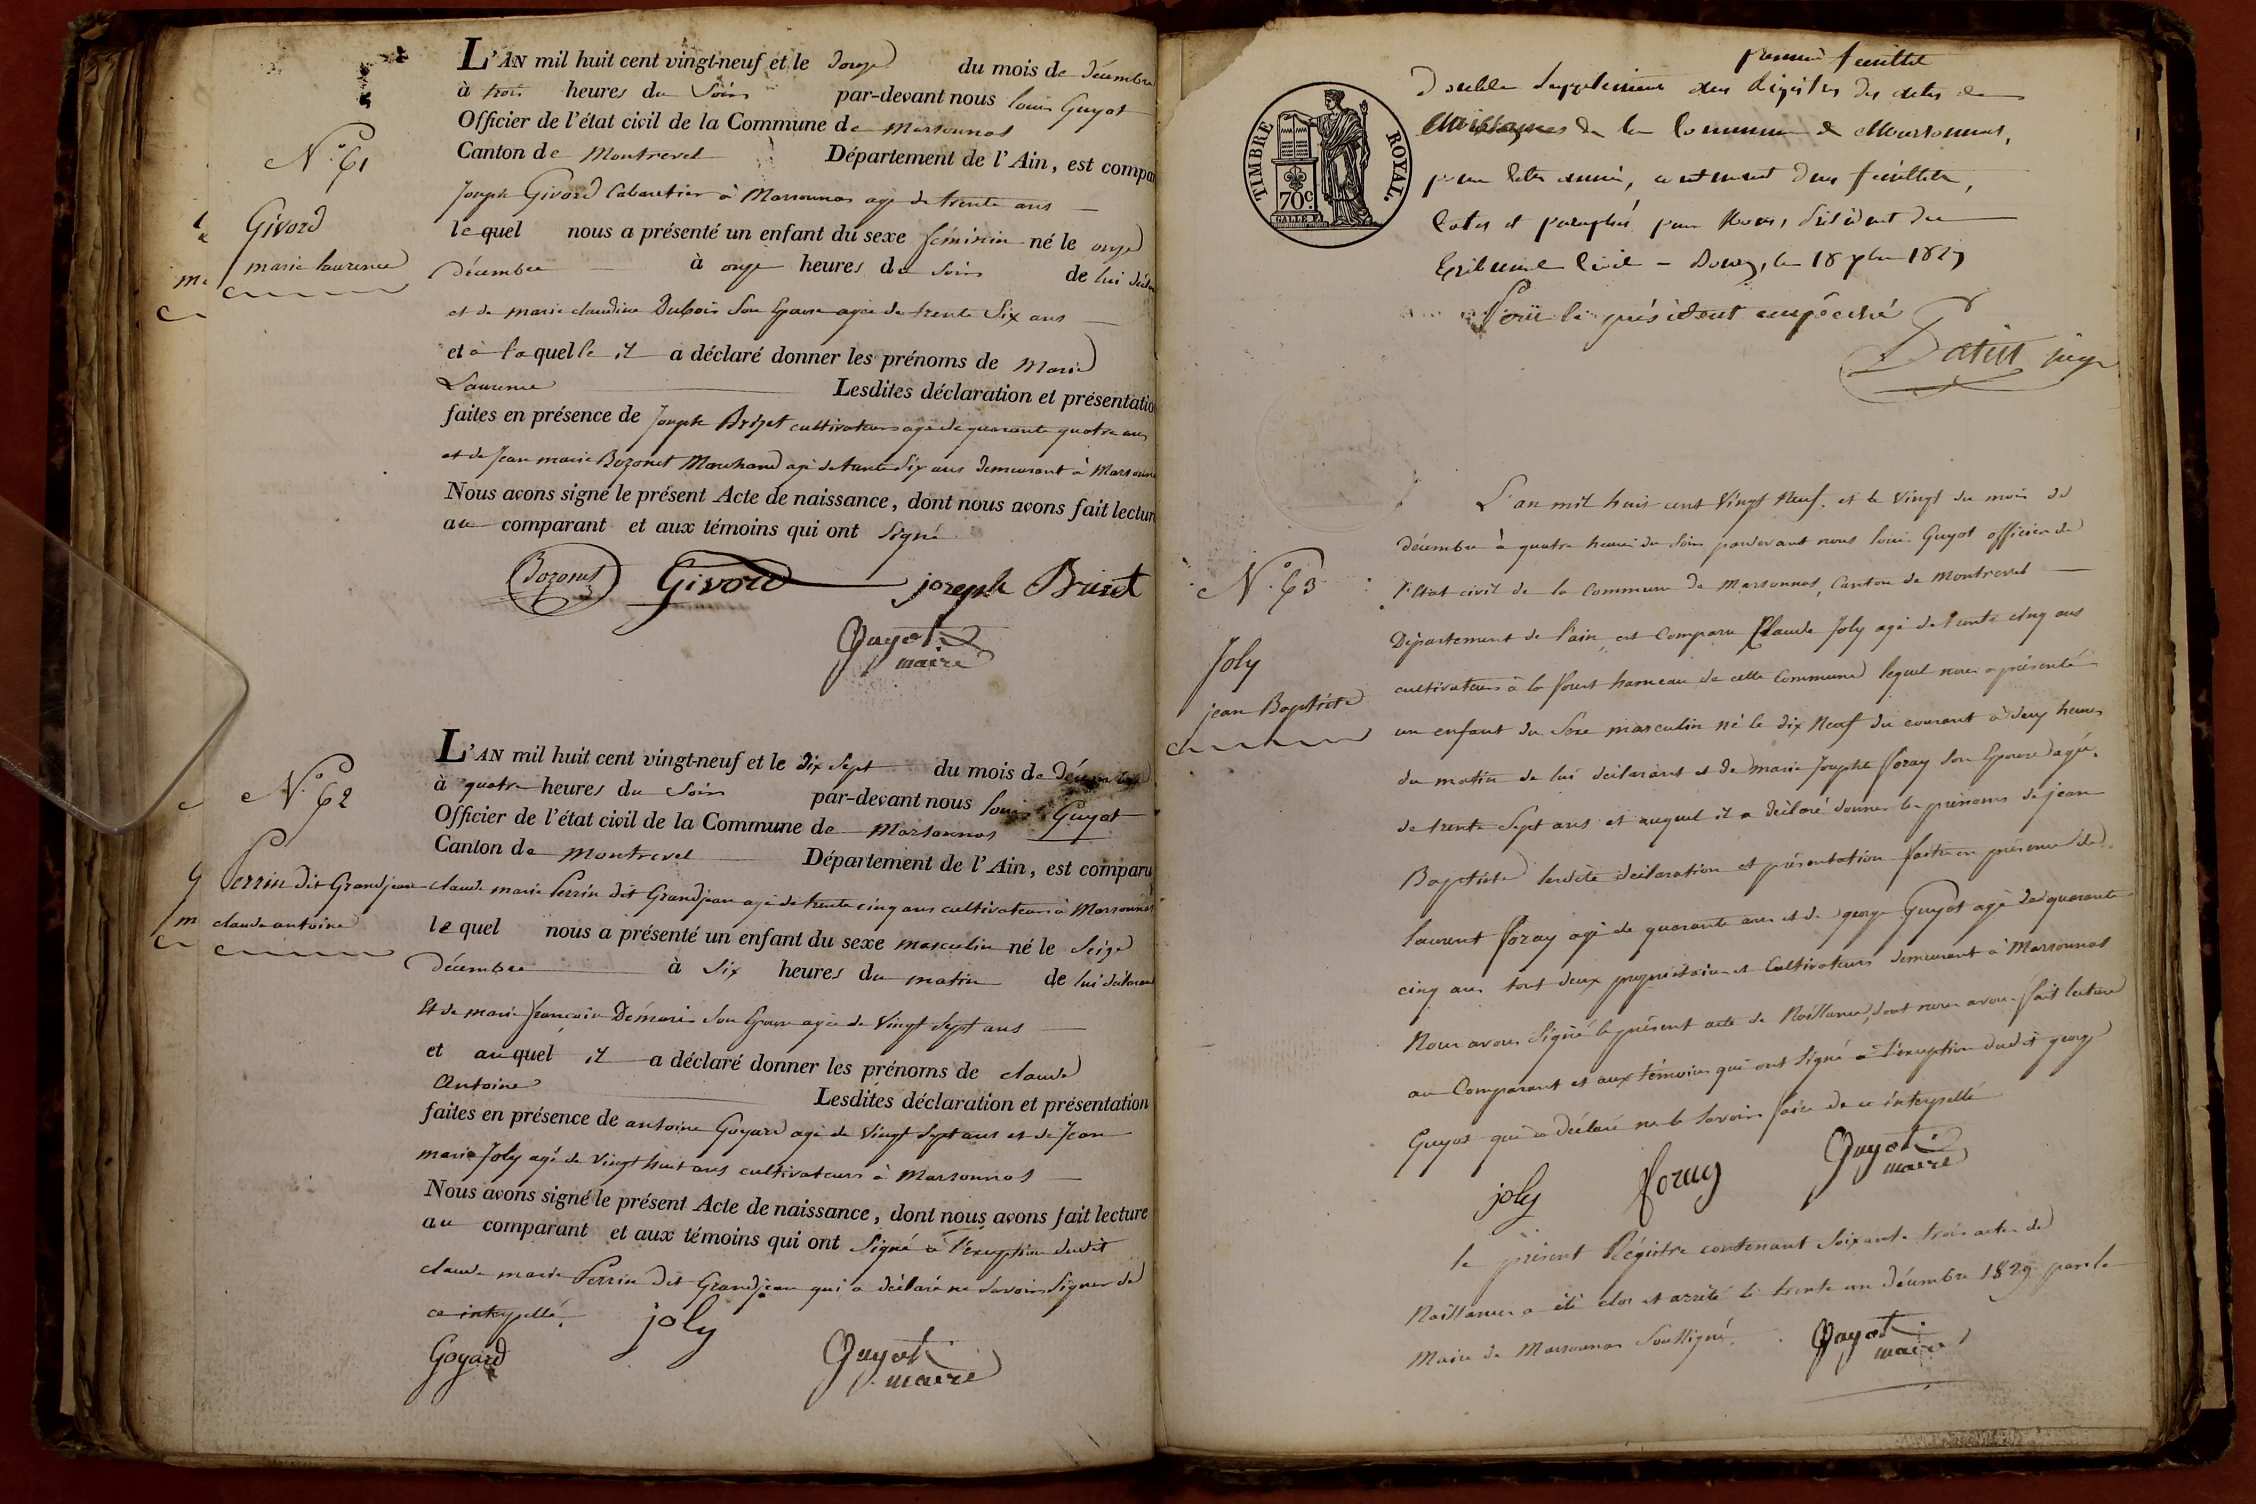 N.º 61
Givord
marie laurence
L'AN mil huit cent vingt-neuf et le douze du mois de décembre
à trois heures du Soir par-devant nous louis Guyot
Officier de l'état civil de la Commune de Marsonnas
Canton de Montrevel Département de l'Ain, est compa
Joseph Givord Cabaretier à Marsonnas agé de trente ans
lequel nous a présenté un enfant du sexe féminin né le onze
décembre à onze heures du Soir de lui décla
et de marie claudine Dubois Son Epouse agée de trente Six ans
et à laquelle il a déclaré donner les prénoms de Marie
Laurence Lesdites déclaration et présentatio
faites en présence de Joseph Brizet cultivateur agé de quarante quatre ans
et de Jean marie Bozonet Marchand agé de trente Six ans demeurant à Marsonn
Nous avons signé le présent Acte de naissance, dont nous avons fait lectur
au comparant et aux témoins qui ont Signé
Bozonet Givord joseph Briset
Guyot
maire
N.º 62
Perrin dit Grandjean
claude antoine
L'AN mil huit cent vingt-neuf et le dix Sept du mois de Décembre
à quatre heures du Soir par-devant nous louis Guyot
Officier de l'état civil de la Commune de Marsonnas
Canton de Montrevel Département de l'Ain, est comparu
claude marie Perrin dit Grandjean agé de trente cinq ans cultivateur à Marsonnas
lequel nous a présenté un enfant du sexe masculin né le Seize
décembre à Six heures du matin de lui déclarant
Et de marie françoise Démaris Son Epouse agée de Vingt Sept ans
et auquel il a déclaré donner les prénoms de claude
Antoine Lesdites déclaration et présentation
faites en présence de antoine Goyard agé de Vingt Sept ans et de Jean
marie Joly agé de Vingt huit ans cultivateurs à Marsonnas
Nous avons signé le présent Acte de naissance, dont nous avons fait lecture
au comparant et aux témoins qui ont Signé à l'exeption dudit
claude marie Perrin dit Grandjean qui a déclaré ne Savoir Signer de
ce interpellé.
Goyard joly Guyot
maire
premier feuillet
Double Supplément aux Registres des actes de
Naissances de la Commune de Marsonnas,
pour cette année, contenant deux feuillets,
Cotés et paraphés par Nous, Président du
Tribunal Civil - Bourg, le 18 xbre 1829
Pour le président empêché
juge
TIMBRE ROYAL.
70c.
N.º 63
Joly
jean Baptiste
L'an mil huit cent Vingt Neuf. et le Vingt du mois de
décembre à quatre heures du Soir pardevant nous louis Guyot officier de
l'Etat civil de la Commune de Marsonnas, Canton de Montrevel
Département de l'ain, est Comparu Claude Joly agé de trente cinq ans
cultivateur à la forest hameau de cette Commune lequel nous a présenté
un enfant du Sexe masculin né le dix Neuf du courant à deux heures
du matin de lui déclarant et de marie Josephte foray Son Epouse agée
de trente Sept ans et auquel il a déclaré donner les prénoms de jean
Baptiste lesdite déclaration et présentation faite en présence de
laurent foray agé de quarante ans et de george Guyot agé de quarante
cinq ans tout deux propriétaires et Cultivateurs demeurant à Marsonnas
Nous avons Signé le présent acte de Naissance, dont nous avons fait lecture
au Comparant et aux témoins qui ont Signé à l'exeption dudit george
Guyot qui a déclaré ne le Savoir faire de ce interpellé
joly foray Guyot
maire
le présent Régistre contenant Soixante trois actes de
Naissances a été clos et arrêté le trente un décembre 1829 par le
Maire de Marsonnas Soussigné.
Guyot
maire